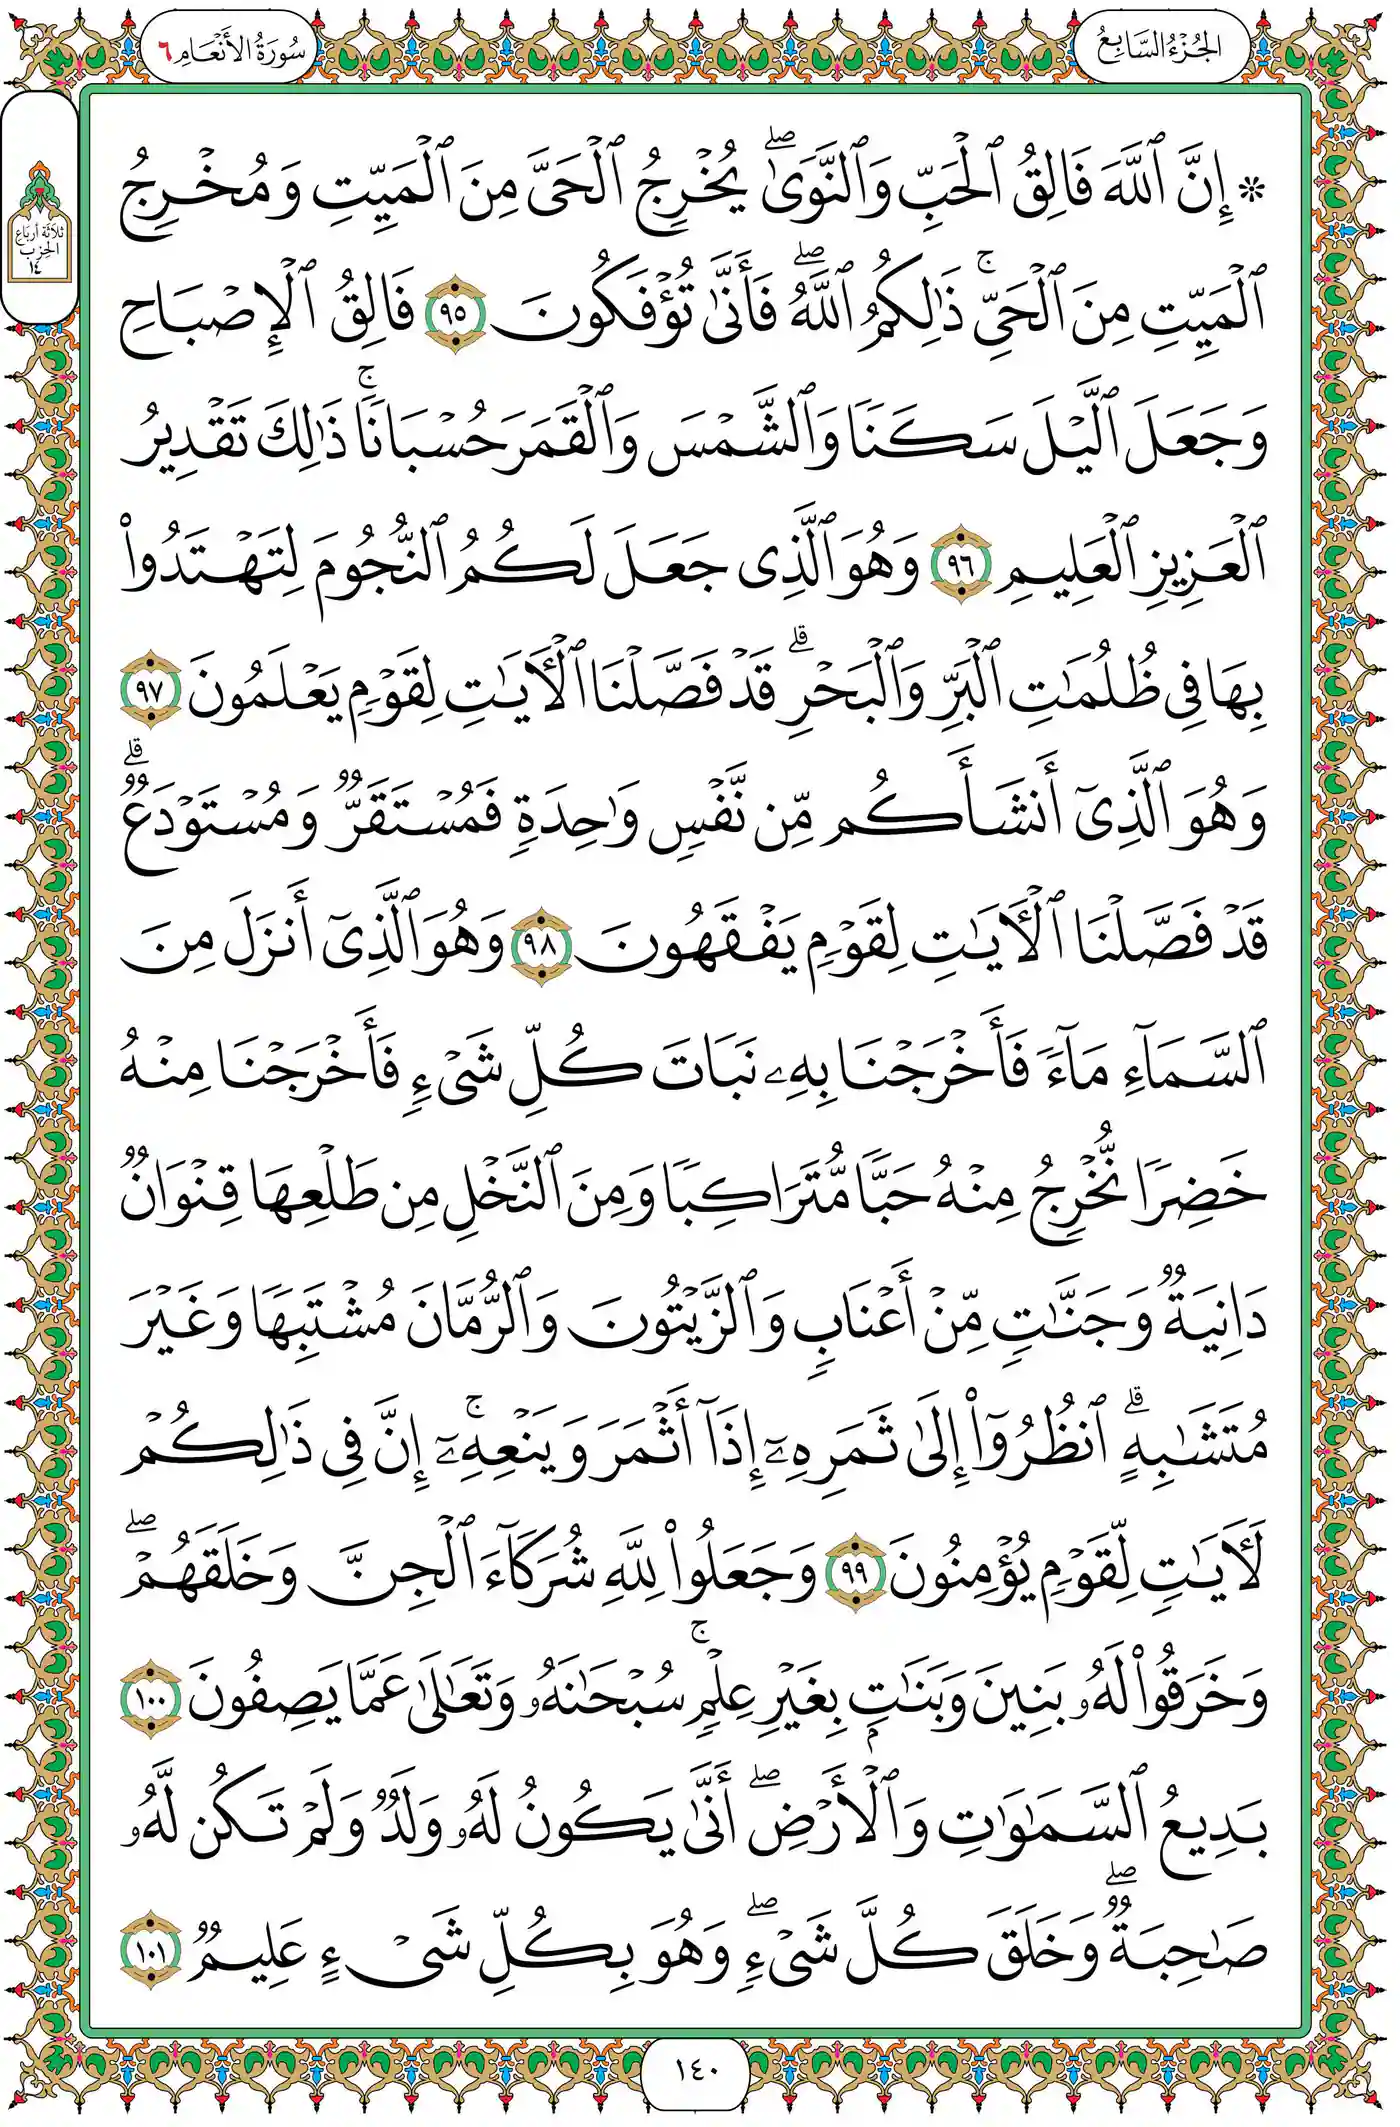 الجُزْءُ السَّابِعُ
سُورَةُ الأَنْعَامِ ٦
ثلاثة أرباع
الحزب
١٤
۞ إِنَّ ٱللَّهَ فَالِقُ ٱلْحَبِّ وَٱلنَّوَىٰۖ يُخْرِجُ ٱلْحَىَّ مِنَ ٱلْمَيِّتِ وَمُخْرِجُ
ٱلْمَيِّتِ مِنَ ٱلْحَىِّۚ ذَٰلِكُمُ ٱللَّهُۖ فَأَنَّىٰ تُؤْفَكُونَ ٩٥ فَالِقُ ٱلْإِصْبَاحِ
وَجَعَلَ ٱلَّيْلَ سَكَنًا وَٱلشَّمْسَ وَٱلْقَمَرَ حُسْبَانًاۚ ذَٰلِكَ تَقْدِيرُ
ٱلْعَزِيزِ ٱلْعَلِيمِ ٩٦ وَهُوَ ٱلَّذِى جَعَلَ لَكُمُ ٱلنُّجُومَ لِتَهْتَدُوا۟
بِهَا فِى ظُلُمَٰتِ ٱلْبَرِّ وَٱلْبَحْرِۗ قَدْ فَصَّلْنَا ٱلْءَايَٰتِ لِقَوْمٍ يَعْلَمُونَ ٩٧
وَهُوَ ٱلَّذِىٓ أَنشَأَكُم مِّن نَّفْسٍ وَٰحِدَةٍ فَمُسْتَقَرٌّ وَمُسْتَوْدَعٌۗ
قَدْ فَصَّلْنَا ٱلْءَايَٰتِ لِقَوْمٍ يَفْقَهُونَ ٩٨ وَهُوَ ٱلَّذِىٓ أَنزَلَ مِنَ
ٱلسَّمَآءِ مَآءً فَأَخْرَجْنَا بِهِۦ نَبَاتَ كُلِّ شَىْءٍ فَأَخْرَجْنَا مِنْهُ
خَضِرًا نُّخْرِجُ مِنْهُ حَبًّا مُّتَرَاكِبًا وَمِنَ ٱلنَّخْلِ مِن طَلْعِهَا قِنْوَانٌ
دَانِيَةٌ وَجَنَّٰتٍ مِّنْ أَعْنَابٍ وَٱلزَّيْتُونَ وَٱلرُّمَّانَ مُشْتَبِهًا وَغَيْرَ
مُتَشَٰبِهٍۗ ٱنظُرُوٓا۟ إِلَىٰ ثَمَرِهِۦٓ إِذَآ أَثْمَرَ وَيَنْعِهِۦٓۚ إِنَّ فِى ذَٰلِكُمْ
لَءَايَٰتٍ لِّقَوْمٍ يُؤْمِنُونَ ٩٩ وَجَعَلُوا۟ لِلَّهِ شُرَكَآءَ ٱلْجِنَّ وَخَلَقَهُمْۖ
وَخَرَقُوا۟ لَهُۥ بَنِينَ وَبَنَٰتٍۭ بِغَيْرِ عِلْمٍۚ سُبْحَٰنَهُۥ وَتَعَٰلَىٰ عَمَّا يَصِفُونَ ١٠٠
بَدِيعُ ٱلسَّمَٰوَٰتِ وَٱلْأَرْضِۖ أَنَّىٰ يَكُونُ لَهُۥ وَلَدٌ وَلَمْ تَكُن لَّهُۥ
صَٰحِبَةٌۖ وَخَلَقَ كُلَّ شَىْءٍۖ وَهُوَ بِكُلِّ شَىْءٍ عَلِيمٌ ١٠١
١٤٠